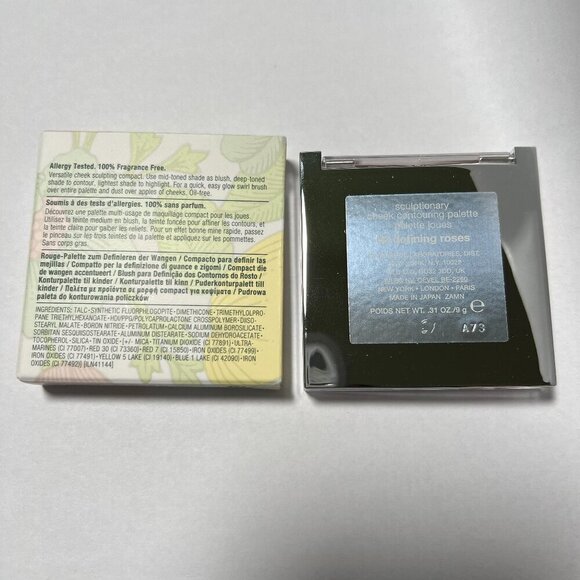 Allergy Tested. 100% Fragrance Free.
Versatile cheek sculpting compact. Use mid-toned shade as blush, deep-toned
shade to contour, lightest shade to highlight. For a quick, easy glow swirl brush
over entire palette and dust over apples of cheeks. Oil-free.
Soumis à des tests d'allergies. 100% sans parfum.
Découvrez une palette multi-usage de maquillage compact pour les joues.
Utilisez la teinte medium en blush, la teinte foncée pour affiner les contours et
la teinte claire pour galber les reliefs. Pour un effet bonne mine rapide, passez
le pinceau sur les trois teintes de la palette et appliquez sur les pommettes.
Sans corps gras.
Rouge-Palette zum Definieren der Wangen / Compacto para definir las
mejillas / Compatto per la definizione di guance e zigomi / Compact die
de wangen accentueert / Blush para Definição dos Contornos do Rosto /
Konturpalette til kinder / Konturpalette til kinn / Puderkonturpalett till
kinder / Παλέτα με προϊόντα σε μορφή compact για κοψίματα / Pudrowa
paleta do konturowania policzków
INGREDIENTS: TALC • SYNTHETIC FLUORPHLOGOPITE • DIMETHICONE • TRIMETHYLOLPRO-
PANE TRIETHYLHEXANOATE • HDI/PPG/POLYCAPROLACTONE CROSSPOLYMER • DIISO-
STEARYL MALATE • BORON NITRIDE • PETROLATUM • CALCIUM ALUMINUM BOROSILICATE •
SORBITAN SESQUIISOSTEARATE • ALUMINUM DISTEARATE • SODIUM DEHYDROACETATE •
TOCOPHEROL • SILICA • TIN OXIDE • [+/- MICA • TITANIUM DIOXIDE (CI 77891) • ULTRA-
MARINES (CI 77007) • RED 30 (CI 73360) • RED 7 (CI 15850) • IRON OXIDES (CI 77499) •
IRON OXIDES (CI 77491) • YELLOW 5 LAKE (CI 19140) • BLUE 1 LAKE (CI 42090) • IRON
OXIDES (CI 77492)] [ILN41144]
sculptionary
cheek contouring palette
palette joues
defining roses
LABORATORIES, DIST.
NEW YORK • LONDON • PARIS
MADE IN JAPAN ZAMN
POIDS NET WT. .31 OZ./9 g ℮
A73